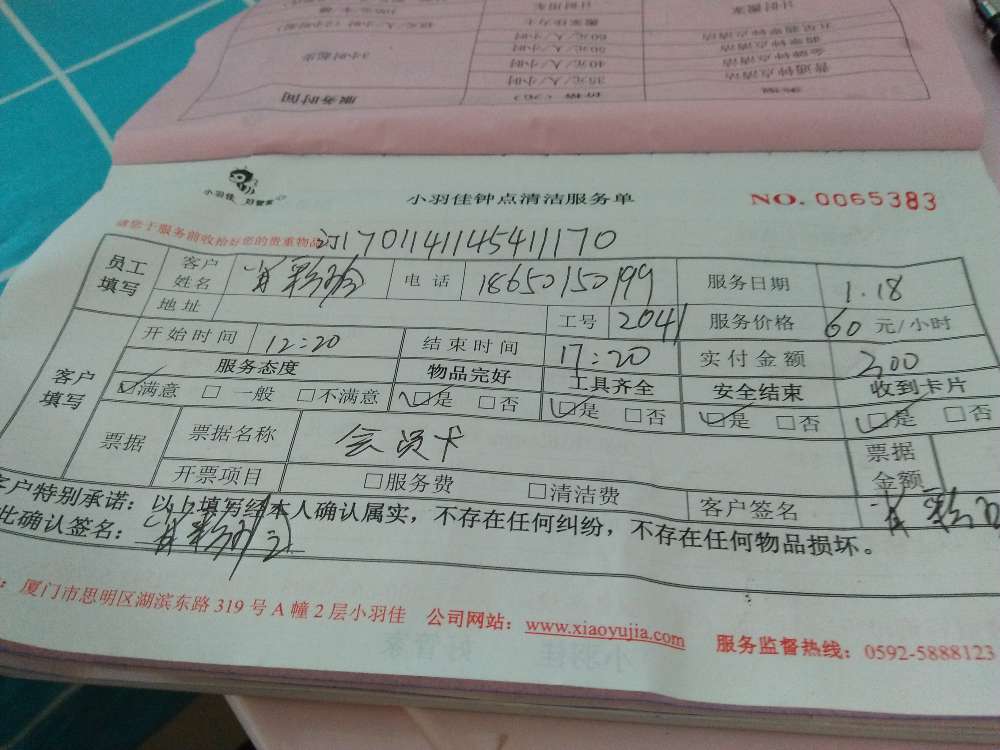 服务时间 价格（元） 类别
35元/人/小时 普通钟点清洁
3小时起步 40元/人/小时 金牌钟点清洁
50元/人/小时
60元/人/小时
计时搬家
小羽佳 好管家
小羽佳钟点清洁服务单
NO. 0065383
请您于服务前收拾好您的贵重物品
1701141145411170
员工填写 客户姓名 电话 18650150199 服务日期 1.18
地址 工号 2041 服务价格 60 元/小时
客户填写 开始时间 12:20 结束时间 17:20 实付金额 300
服务态度 物品完好 工具齐全 安全结束 收到卡片
☑满意 □一般 □不满意 ☑是 □否 ☑是 □否 ☑是 □否 ☑是 □否
票据 票据名称 会员卡 票据金额
开票项目 □服务费 □清洁费 客户签名
客户特别承诺：以上填写经本人确认属实，不存在任何纠纷，不存在任何物品损坏。
此确认签名：
厦门市思明区湖滨东路 319 号 A 幢 2 层小羽佳 公司网站：www.xiaoyujia.com 服务监督热线：0592-5888123